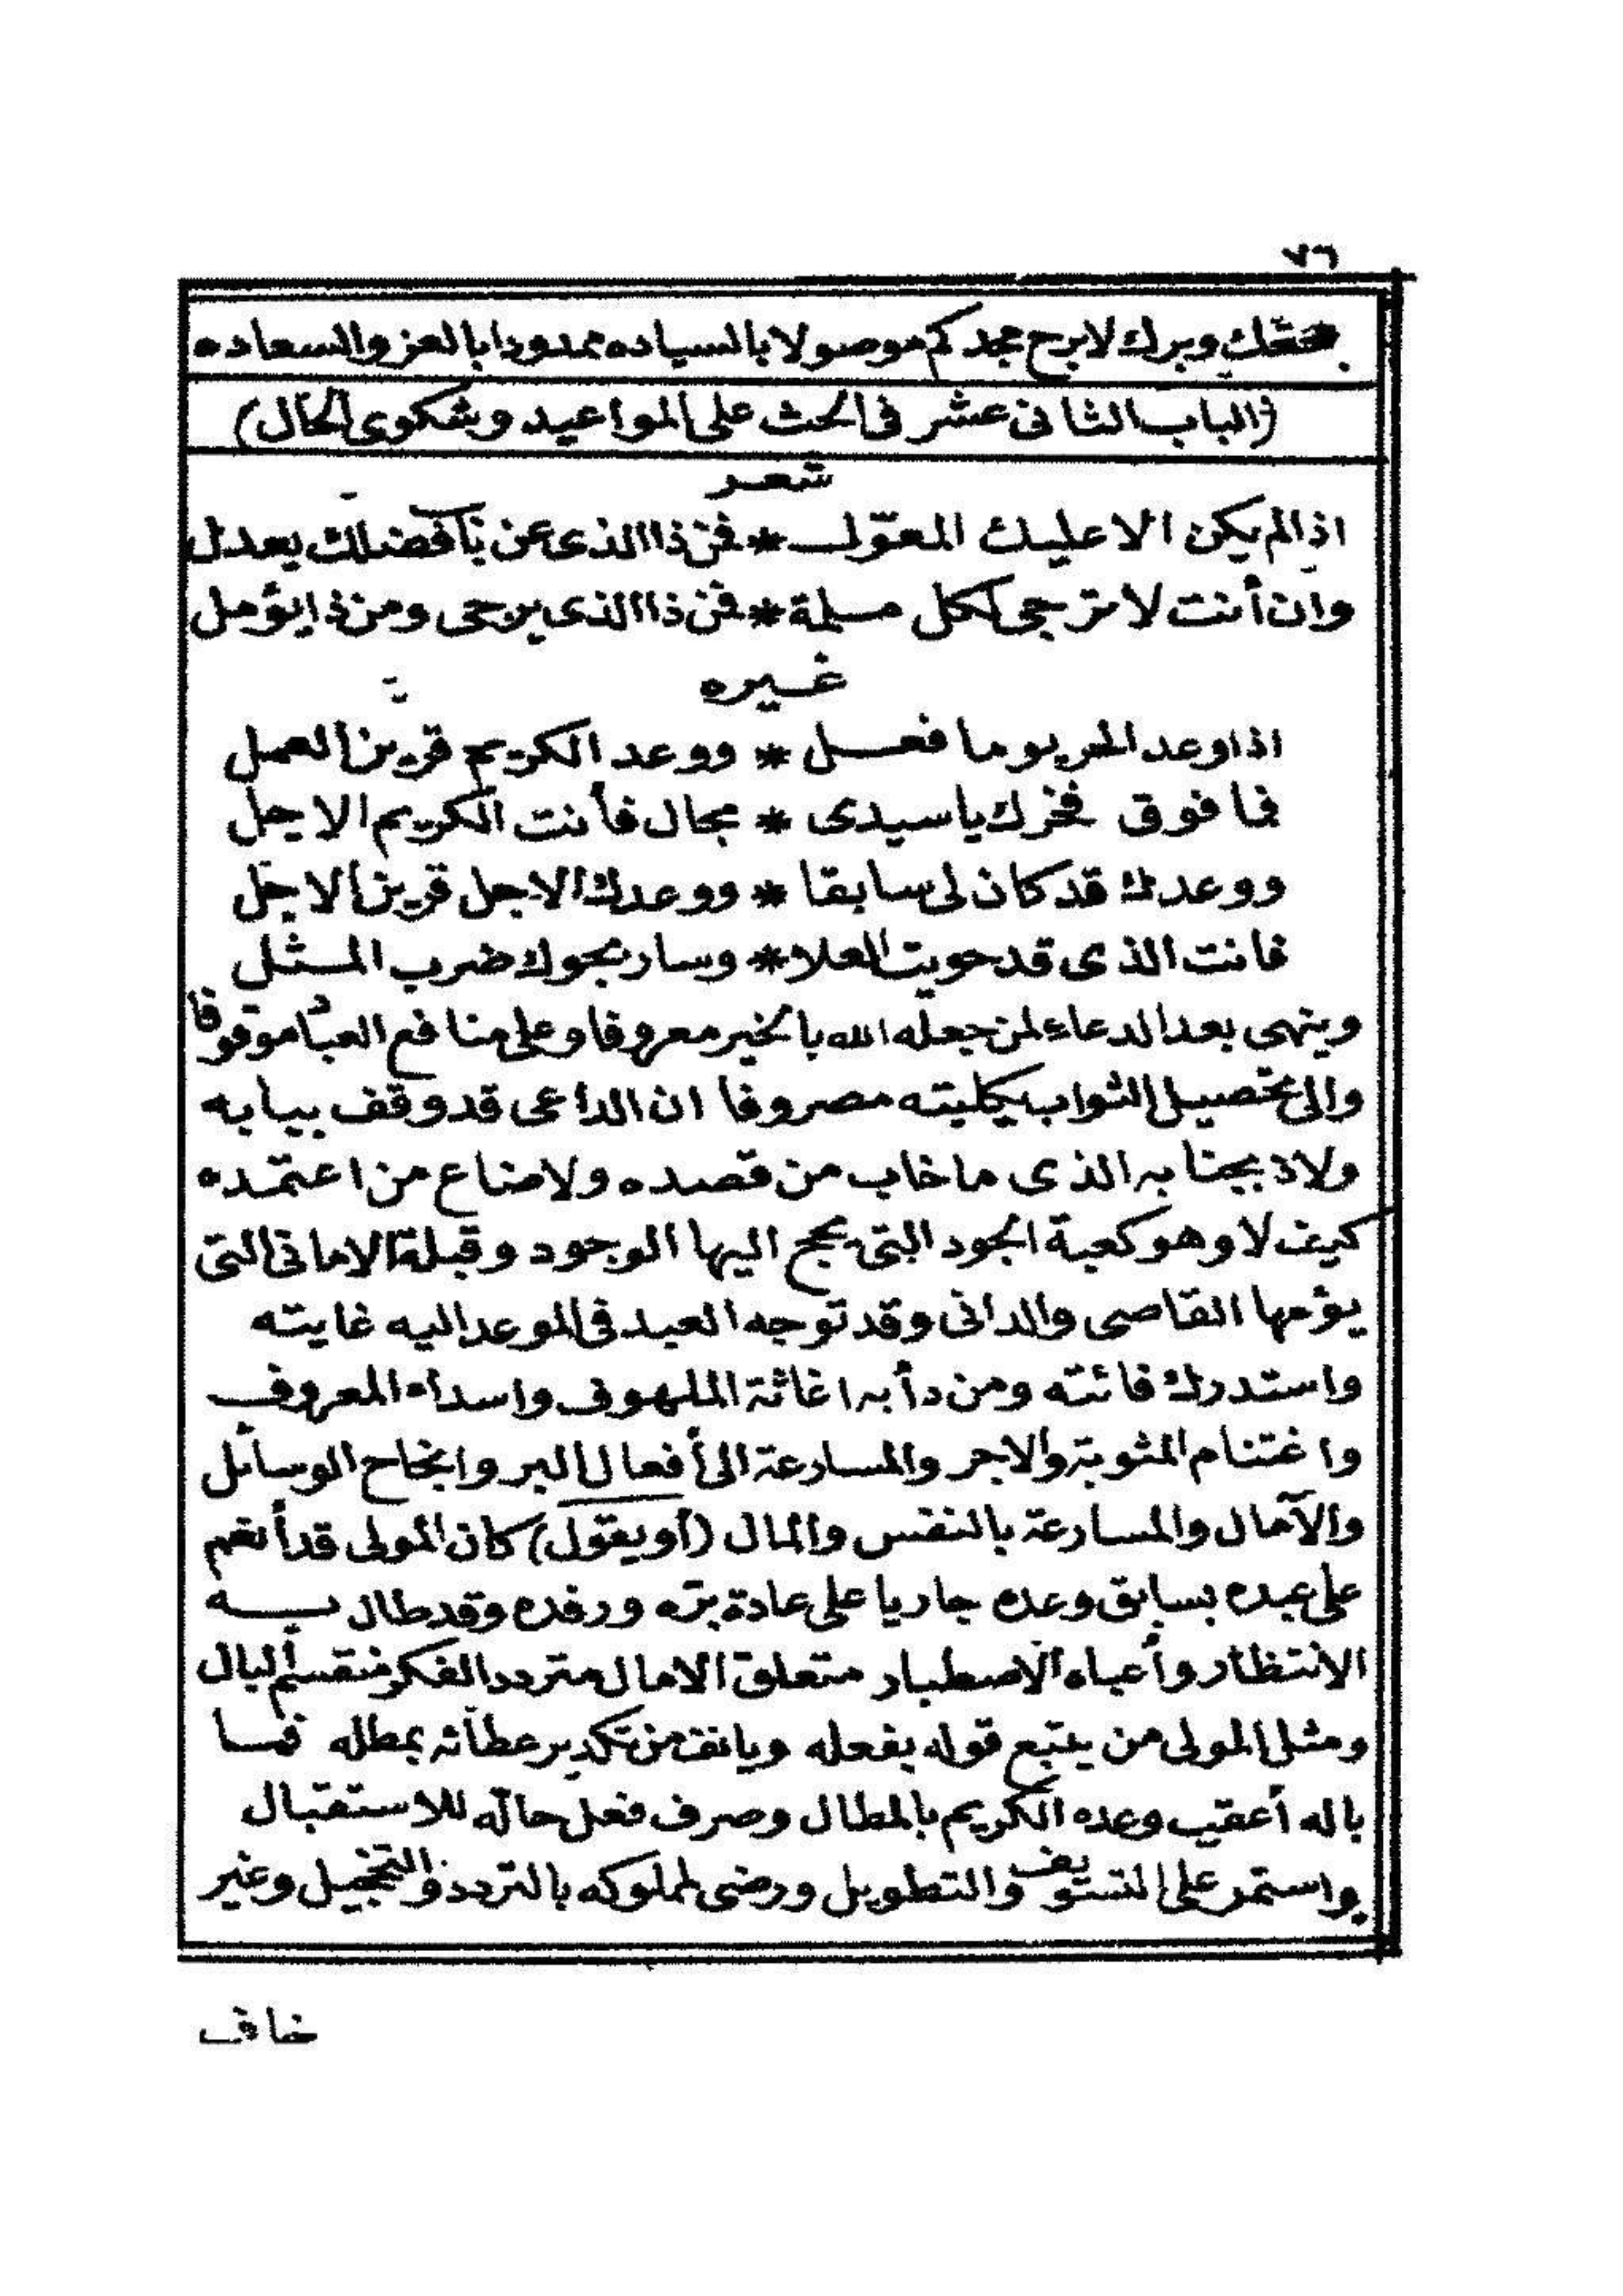 ٧٦
بحقك وبرك لابرح مجدكم موصولا بالسياده ممدودا بالعز والسعاده
(الباب الثانى عشر فى الحث على المواعيد وشكوى الحال)
شعر
اذا لم يكن الا عليك المعوّل * فمن ذا الذى عن باب فضلك يعدل
وان أنت لا ترجى لكل مسلمة * فمن ذا الذى يرجى ومن ذا يؤمل
غيره
اذا وعد الحر يوما فعل * ووعد الكريم قرين العمل
فما فوق فخرك يا سيدى * مجال فأنت الكريم الاجل
ووعدك قد كان لى سابقا * ووعدك الاجل قرين الاجل
فانت الذى قد حويت العلا * وسار بجودك ضرب المثل
وينهى بعد الدعاء لمن جعله الله بالخير معروفا وعلى منافع العباد موقوفا
والى تحصيل الثواب بكليته مصروفا ان الداعى قد وقف ببابه
ولاذ بجنابه الذى ما خاب من قصده ولا ضاع من اعتمده
كيف لا وهو كعبة الجود التى يحج اليها الوجود وقبلة الامانى التى
يؤمها القاصى والدانى وقد توجه العبد فى الموعد اليه غايته
واستدرك فائته ومن دأبه اغاثة الملهوف واسداء المعروف
واغتنام المثوبة والاجر والمسارعة الى أفعال البر وانجاح الوسائل
والآمال والمسارعة بالنفس والمال (أو يقول) كان المولى قد أنعم
على عبده بسابق وعده جاريا على عادة برّه ورفده وقد طال به
الانتظار وأعياه الاصطبار متعلق الامال متردد الفكر منقسم البال
ومثل المولى من يتبع قوله بفعله ويانف من تكدير عطائه بمطله فما
باله أعقب وعده الكريم بالمطال وصرف فعل حاله للاستقبال
واستمر على التسويف والتطويل ورضى لمملوكه بالتردد والتخجيل وغير
خاف